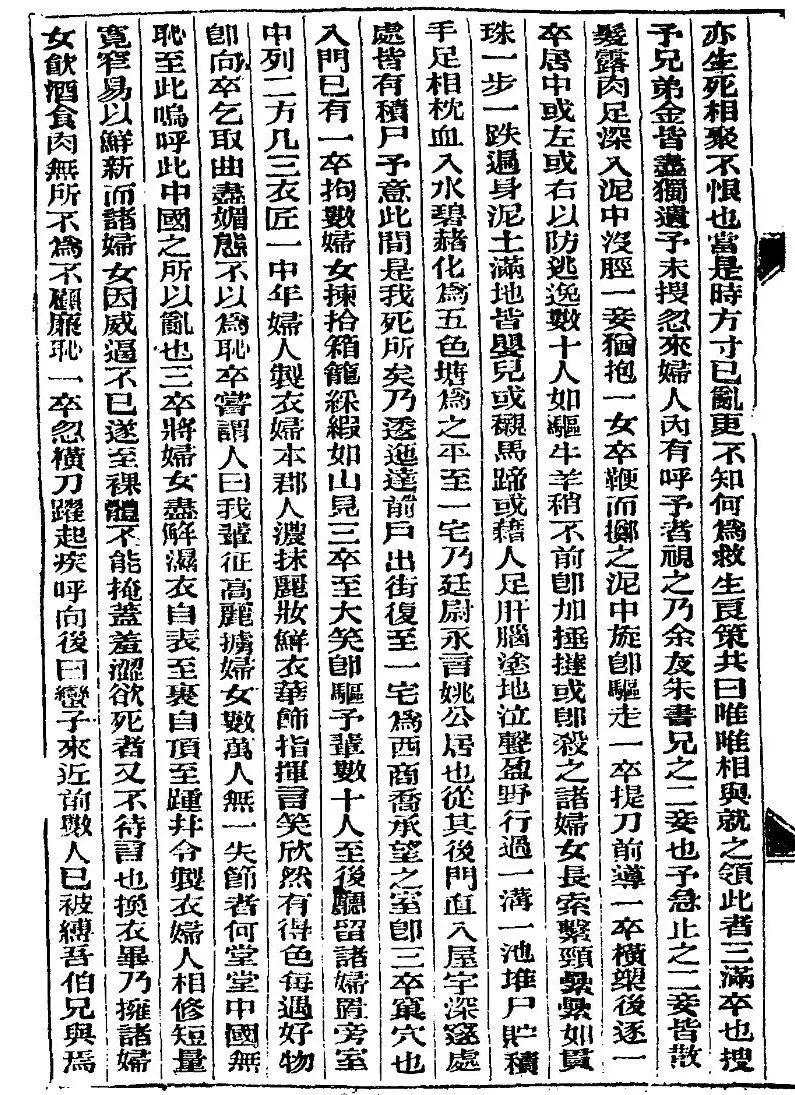 亦生死相聚不恨也當是時方寸已亂更不知何爲救生良策共曰唯唯相與就之領此者三滿卒也搜
予兄弟金皆盡獨遺予未搜忽來婦人內有呼予者視之乃余友朱書兄之二妾也予急止之二妾皆散
髮露肉足深入泥中沒脛一妾猶抱一女卒鞭而擲之泥中旋卽驅走一卒提刀前導一卒橫槊後逐一
卒居中或左或右以防逃逸數十人如驅牛羊稍不前卽加捶撻或卽殺之諸婦女長索繫頸纍纍如貫
珠一步一跌遍身泥土滿地皆嬰兒或襯馬蹄或藉人足肝腦塗地泣聲盈野行過一溝一池堆尸貯積
手足相枕血入水碧赭化爲五色塘爲之平至一宅乃廷尉永言姚公居也從其後門直入屋宇深邃處
處皆有積尸予意此間是我死所矣乃逶迤達前戶出街復至一宅爲西商喬承望之室卽三卒窠穴也
入門已有一卒拘數婦女揀拾箱籠綵緞如山見三卒至大笑卽驅予輩數十人至後廳留諸婦置旁室
中列二方几三衣匠一中年婦人製衣婦本郡人濃抹麗妝鮮衣華飾指揮言笑欣然有得色每遇好物
卽向卒乞取曲盡媚態不以爲恥卒嘗謂人曰我輩征高麗擄婦女數萬人無一失節者何堂堂中國無
恥至此嗚呼此中國之所以亂也三卒將婦女盡解濕衣自表至裏自頂至踵幷令製衣婦人相修短量
寬窄易以鮮新而諸婦女因威逼不已遂至裸體不能掩蓋羞澀欲死者又不待言也換衣畢乃擁諸婦
女飮酒食肉無所不爲不顧廉恥一卒忽橫刀躍起疾呼向後曰蠻子來近前數人已被縛吾伯兄與焉